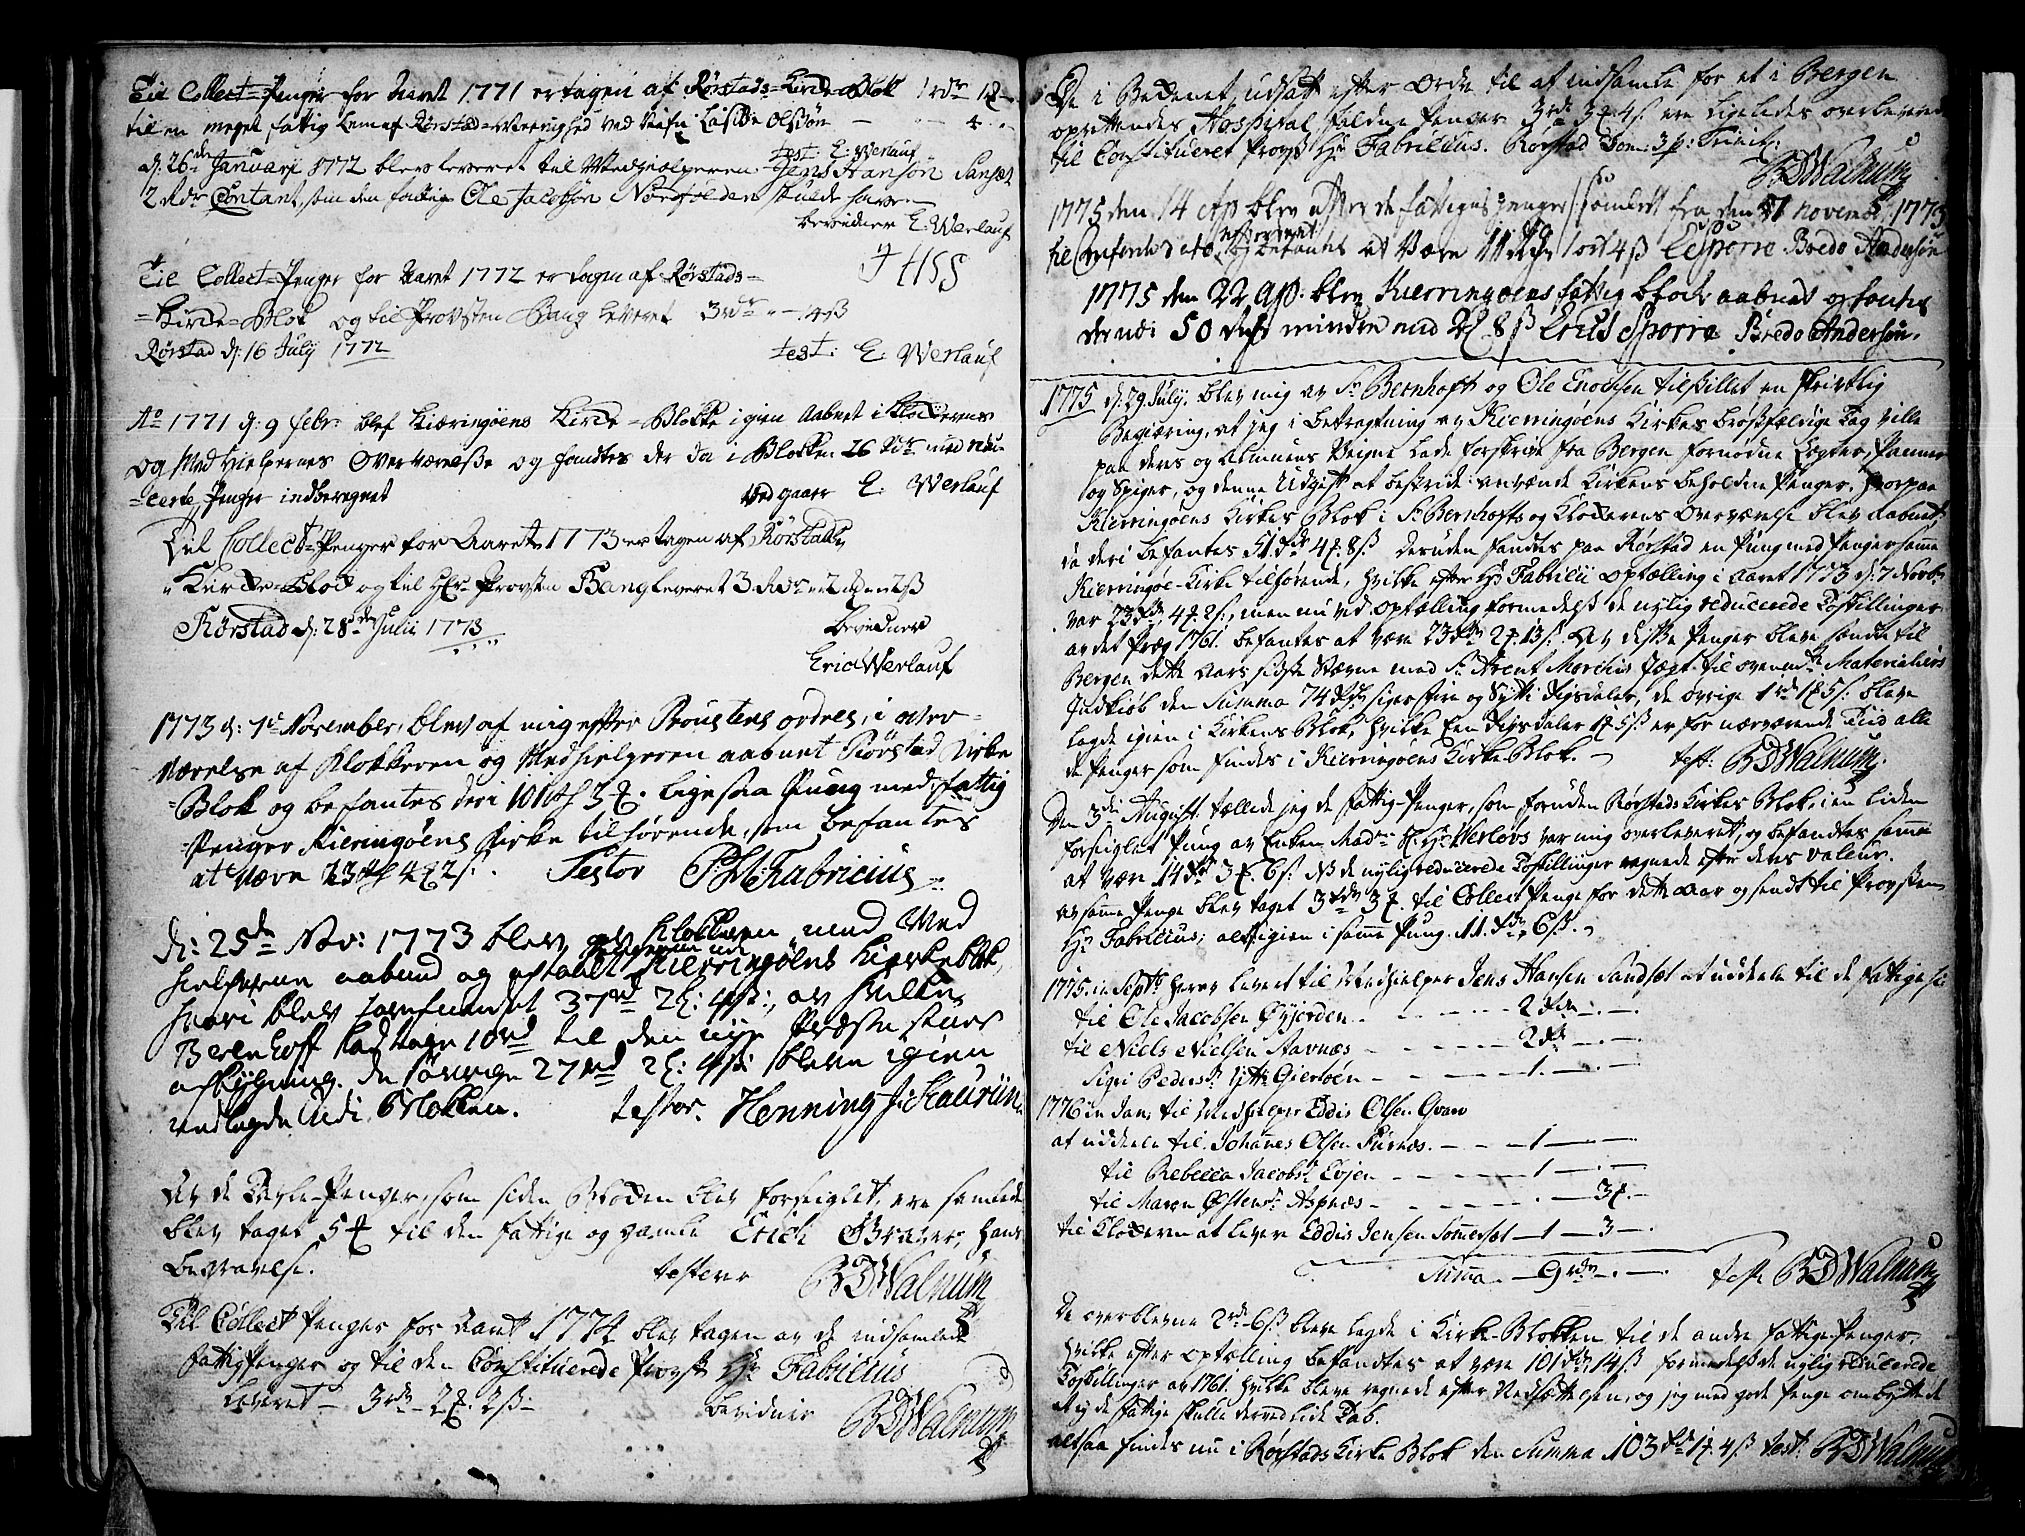 Til Collect-Penger for Aaret 1771 er tagen af Rørstads-Kirche-Blok 1 rdr 1 -
til en meget fattig Lem af Rørstad-Menighed ved Nafn Lasse Olssøn - - - 4
test: E: Werlauf
d: 26de Januarij 1772 blev leveret til Medhielperen Jens Hansøn Sandsæt
2 Rdr Contant, som den fattige Ole Jacobsøn Nordfolden skulde have
bevidner E: Werlauf
Til Collect-Penger for Aaret 1772 er tagen af Rørstads-
-Kirche-Blok og til Provsten Bang leveret 3 rdr - 4 ß
Rørstad d: 16 Julij 1772 test: E: Werlauf
Ao 1771 d: 9 Febr: blef Kiæringøens Kirche-Blokke igien Aabnet i Klockerens
og Medhielpernes Overværelse og fandtes der da i Blokken 26 Rdr med
-certe Penger indberegnet Vedgaaer E: Werlauf
Til Collect-Penger for Aaret 1773 er tagen af Rørstads
Kirche-Block og til Hr Provsten Bang leveret 3 Rdr 2 2 ß
Rørstad d: 28de Julii 1773 bevidner
Eric Werlauf
1773 d: 7de November, blev af mig efter Provstens ordre, i over-
værelse af Klokkeren og Medhielperen aabnet Rørstad Kirke
-Blok og befantes deri 101 3 . ligesaa Pung med fattig
-Penger Kieringøens Kirke tilhørende, som befantes
at være 23 4 2 ß. Testor P M: Fabricius
d: 25de Nov: 1773 blev af Klokkeren med Med
hielperne aabnet og optaalt Kierringøens Kierkeblok,
hvori blev forefundet 37 rd 2 : 4 ß:, av hvilke
Berenhoff had tagen 10 rd til den nye Præste stues
de øvrige 27 rd 2 : 4 ß: bleve igien
nedlagde udi Blokken. testor. Henning J: Kaurin
Av de Tavle-Penger, som siden Blocken blev forseiglet, ere samlede
blev taget 5 til den fattige og gamle Erich hans
Begravelse. testerer BDWalnum
Til Collect Penger for Aaret 1774 blev tagen av de indsamlede
fattigpenger og til den Constituerede Provst Hr Fabricius
leveret - 3 rdr - 2 . 2 ß -
bevidner BDWalnum
De i Beckenet, udsatt efter Ordre til at indsamle for et i Bergen
oprettendes Hospital, faldne Penger 3 rdr 3 4 ß. ere ligeledes overleverede
til Constitueret Provst Hr Fabricius. Rørstad Dom: 3 p: Trinit:
BDWalnum
1775 den 14 Ap blev efter de fattiges Penger samlet fra den 7 Novemb 1773
til Conferenced efterseet og befantes at være 11 1 ort 4 ß ESporre Bredo Andersøn
1775 den 22 Ap: blev Kierringøens fattig block aabnet og fantes
derudi 50 mindre end 2 8 ß Erich Sporre Bredo Andersøn.
1775 d: 29 July. blev mig av Sr Bernhoft og Ole Enochsen tilstillet en skriftlig
Begiæring, at jeg i betragtning av Kierringøens Kirkes brøstfældige Tag ville
paa deres og Almuens Veigne lade forskrive fra Bergen fornødne Lægter, Panner
og Spiger, og denne Udgift at bestride anvende Kirkens beholdne Penger. Hvorpaa
Kierringøens Kirkes Blok i Sr Bernhofts og Klockerens Overværelse blev aabnet,
da deri befantes 51 Rdr 4 . 8 ß desuden fandtes paa Rørstad en Pung med Penger samme
Kierringøe-Kirke tilhørende, hvilke efter Hr Fabricii Optælling i Aaret 1773 d: 7 Novbr
var 23 rdr, 4 . 2 ß, men nu ved Optælling formedelst de nylig reducerede Tøskillinger
av det Præg 1761. befantes at være 23 rdr 2 . 13 ß. Av disse Penger bleve sendte til
Bergen dette Aars sidste Stævne med Sr Arent Jægt til ovenmdte Materialiers
Indkiøb den Summa 74 rdr siger fire og Sytti Rigsdaler, de øvrige 1 rd 1 5 ß. bleve
lagde igien i Kirkens Blok, hvilke Een Rigsdaler 1 5 ß er for nærværende Tiid alle
de Penger som findes i Kierringøens Kirke Blok. test: BDWalnum
Den 3die August. tællede jeg de fattig-Penger, som foruden Rørstads Kirkes Blok, i en liden
forseiglet Pung av Enken Madme Sl. Hr Werlovs var mig overleveret, og befandtes samme
at være 14 rdr 3 . 6 ß. NB de nylig reducerede Toskillinger regnede efter deres valeur.
Av samme Penge blev taget 3 rdr 3 . til Collect Penge for dette Aar og sendt til Provsten
Hr Fabricius; altsaa igien i samme Pung. 11 rdr 6 ß.
1775. in Septbr herav levert til Medhielper Jens Hansen Sandsæt at uddeele til de Fattige sc:
til Ole Jacobsen Øyjorden - - - - 2 rdr - -
til Niels Nielsen Aavnæs - - - - 2 rdr - -
Sigri Pedersdr Gierløen - - - - 1 - -
1776 in Jan: til Medhielper Eddis Olsen Qvarv
at uddeele til Johannes Olsen Furnæs - - - 1 - -
til Rebecca Jacobsdr Evjen - - - - 1 - -
til Maren Østensdr Aspnæs - - - - 3 . -
til Klockeren at levere Eddis Jensen Sommerset - 1 - 3 -
Summa - 9 rdr - - test BDWalnum
De overblevne 2 rdr 6 ß bleve lagde i Kirke-Blokken til de andre fattige-Penger,
hvilke efter optælling befandtes at være 101 rdr 14 ß formedelst de nylig reducerede
Toskillinger av 1761. hvilke bleve regnede efter Nedsættelsen, og jeg med gode Penge ombyttede
at ej de fattige skulle derved lide Tab.
altsaa findes nu i Rørstads Kirke Blok den Summa 103 rdr 1 4 ß test: BDWalnum